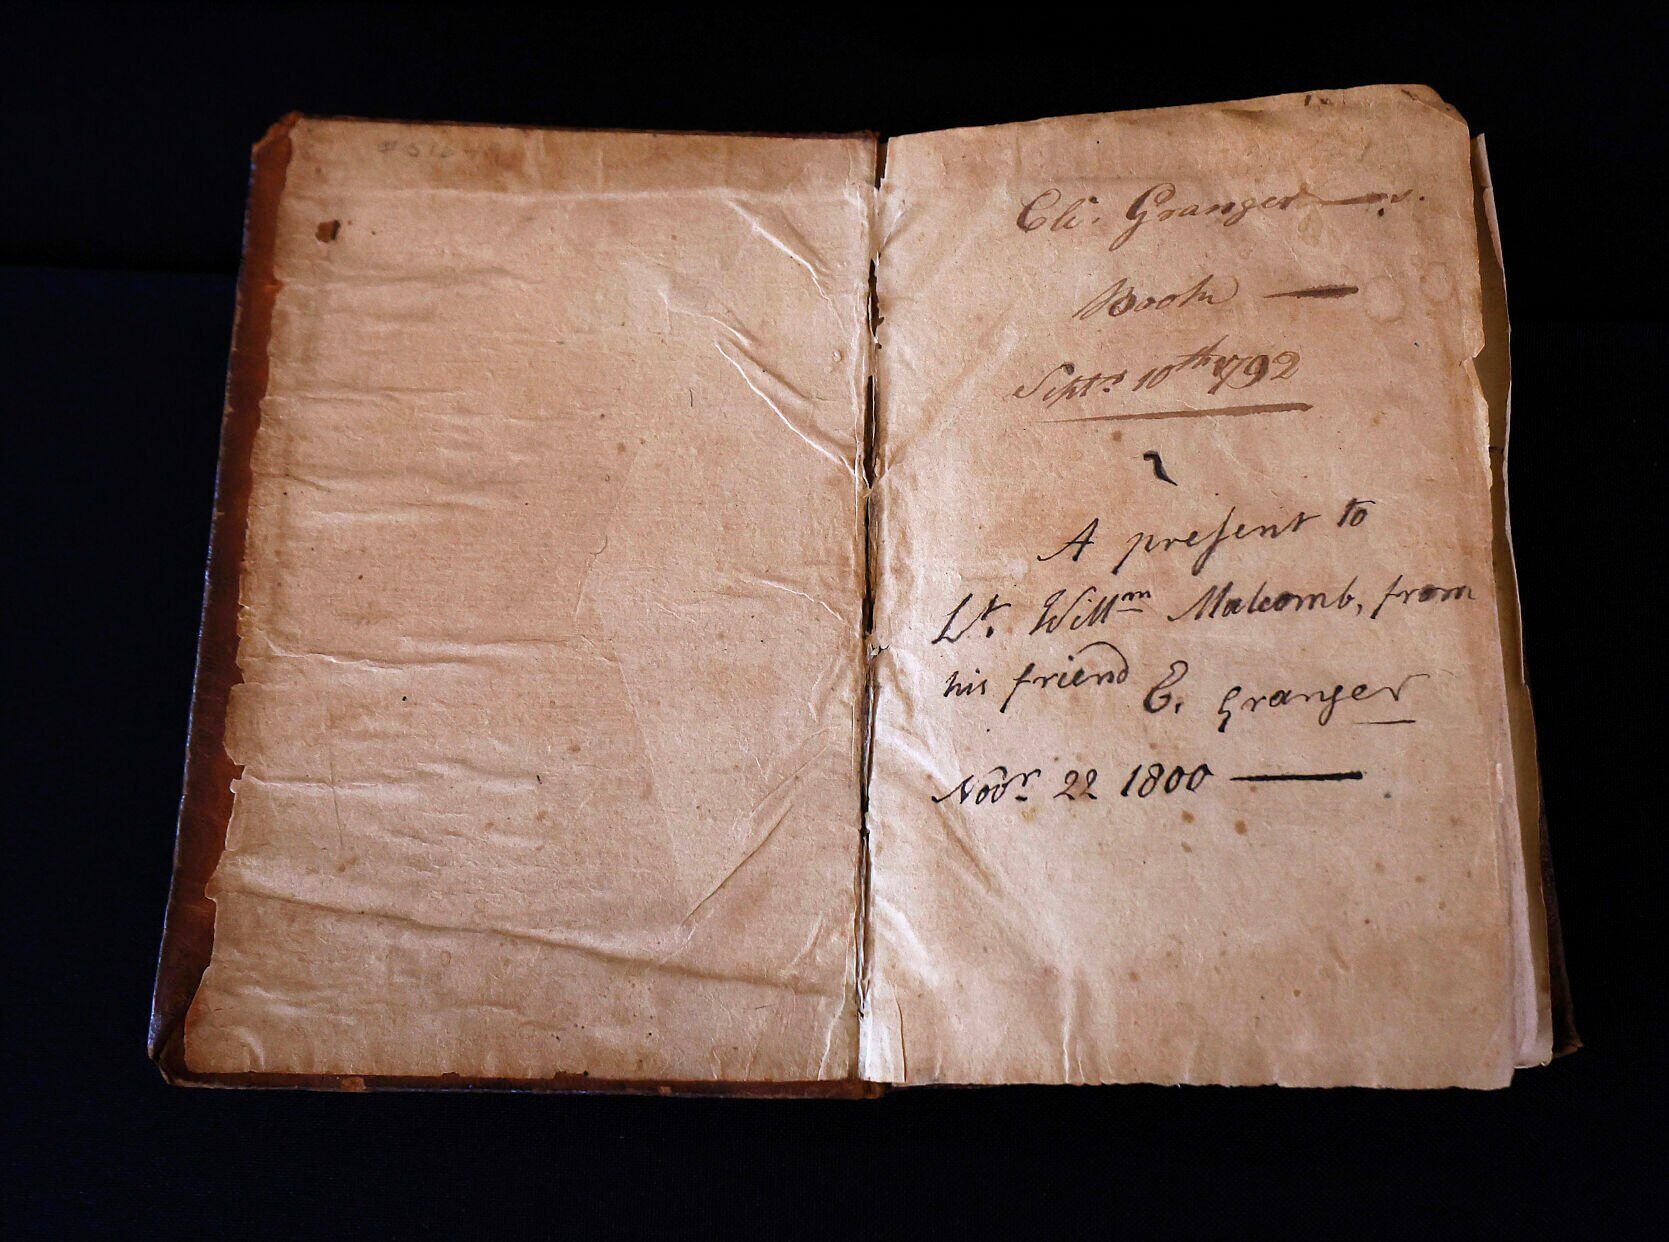 Eli. Granger——s.
Book —
Septr. 10th 1792
A preſent to
Lt. Willm Malcomb, from
his friend E. Granger
Novr. 22 1800 —